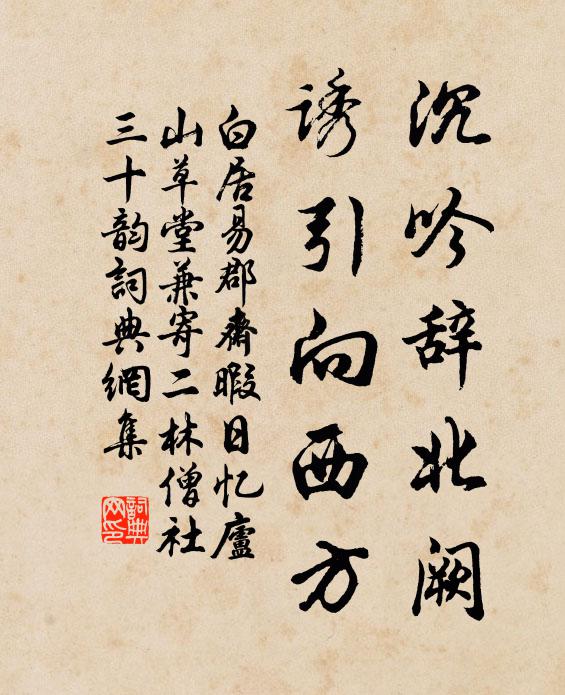 沉吟辞北阙
诱引向西方
白居易郡斋暇日忆廬
山草堂兼寄二林僧社
三十韵詞典網集
詞典
网印